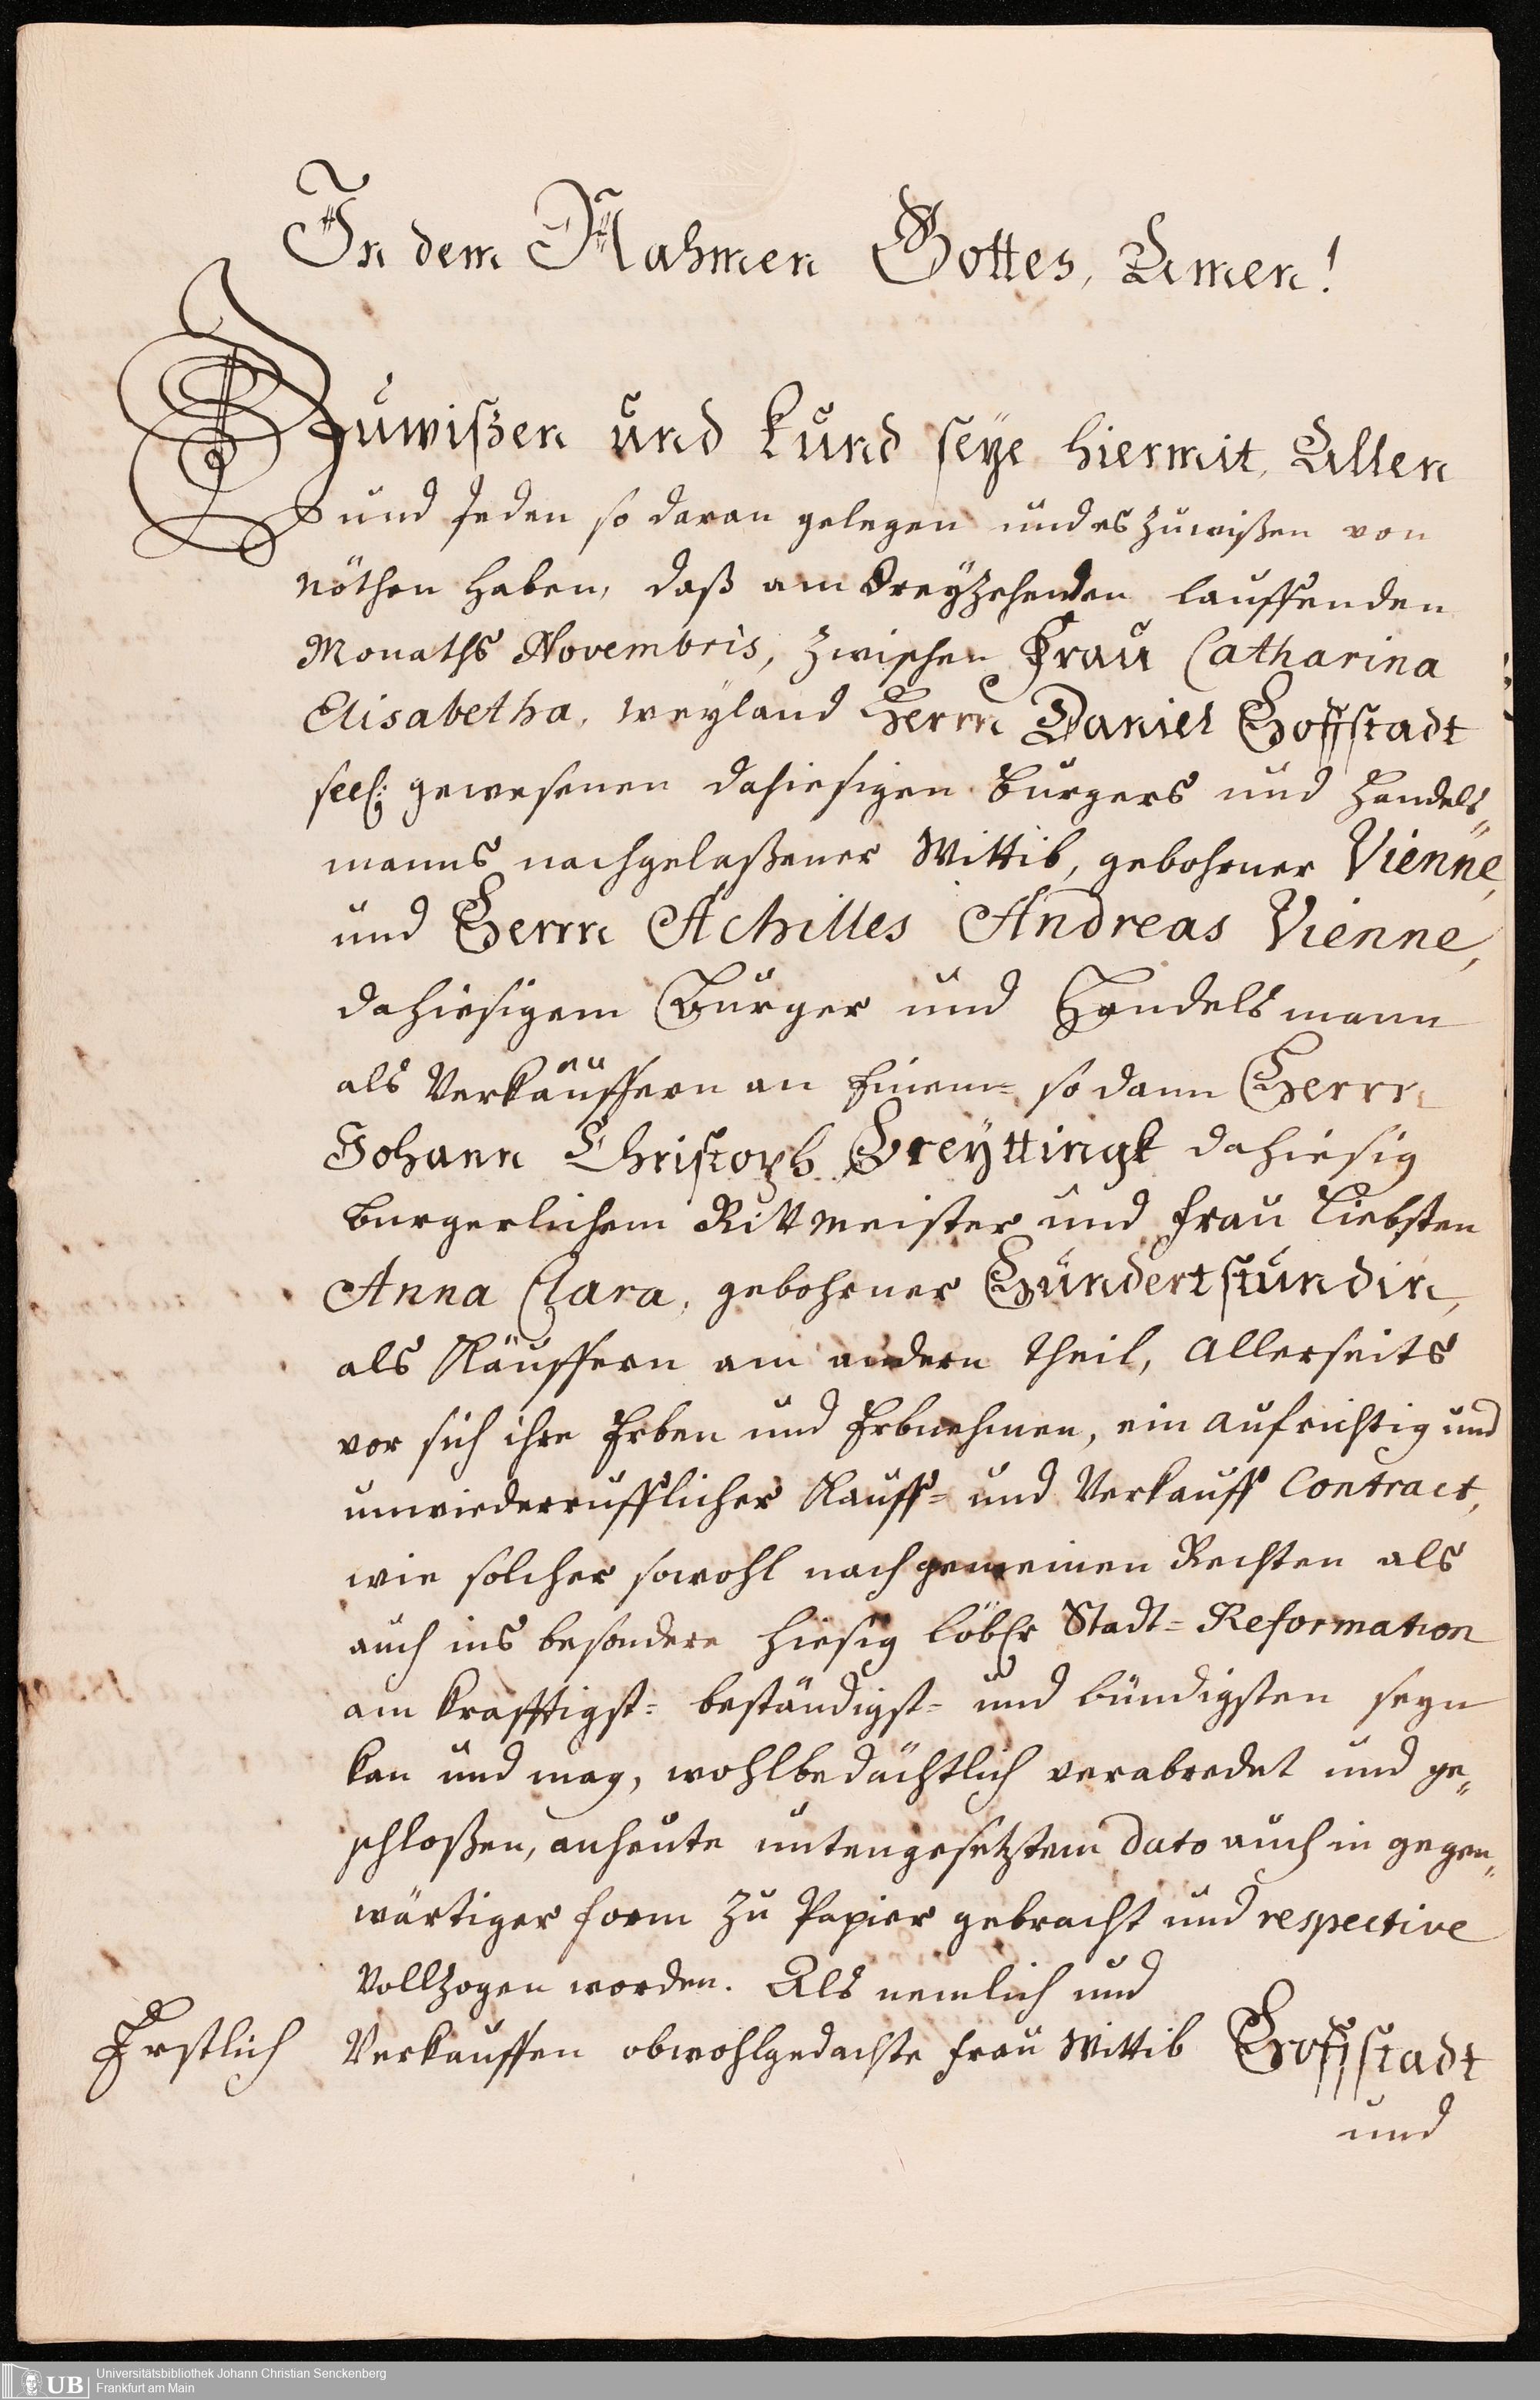 In dem Nahmen Gottes, Amen!
Zuwißen und kund seye hiermit, Allen
und Jeden so daran gelegen und es zuwißen von
nöthen haben, daß am dreyzehenden lauffenden
Monaths Novembris, zwischen Frau Catharina
Elisabetha, weyland Herrn Daniel Hoffstadt
seel: gewesenen dahiesigen Burgers und Handels„
manns nachgelaßener Wittib, gebohrner Vienne,
und Herrn Achilles Andreas Vienne,
dahiesigem Burger und Handelsmann
als Verkäuffern an Einem= so dann Herrn
Johann Christoph Greyttingk dahiesig
Burgerlichem Rittmeister und Frau Liebsten
Anna Clara, gebohrner Hundertstundin,
als Käuffern am andern Theil, Allerseits
vor sich ihre Erben und Erbnehmen, ein aufrichtig und
unwiederrufflicher Kauff= und Verkauff Contract,
wie solcher sowohl nach gemeinen Rechten als
auch ins besondere hiesig löblr Stadt=Reformation
am krafftigst= beständigst= und bündigsten seyn
kan und mag, wohlbedächtlich verabredet und ge„
schloßen, anheute untengesetztem dato auch in gegen„
wärtiger Form zu Papier gebracht und respective
Vollzogen worden. Als nemlich und
Erstlich Verkauffen obwohlgedachte Frau Wittib Hoffstadt
und
UB Universitätsbibliothek Johann Christian Senckenberg
Frankfurt am Main